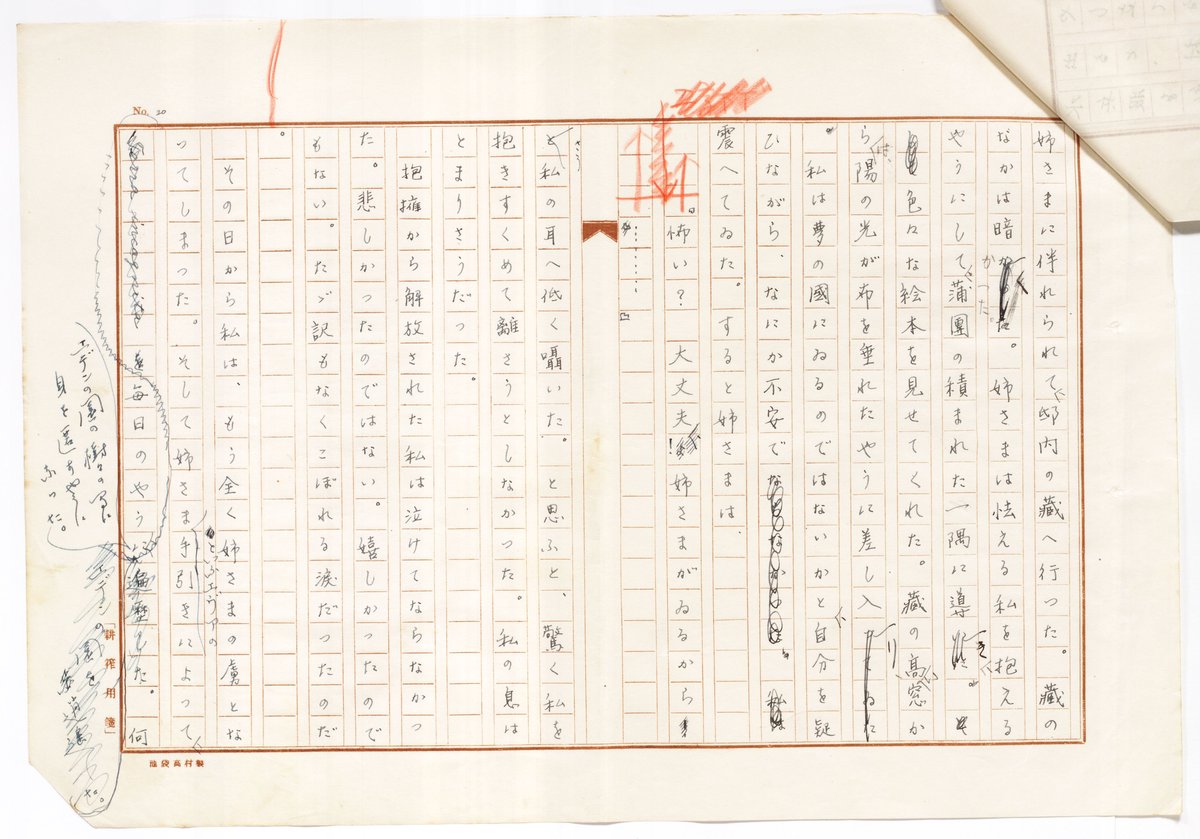 No. 20
姉さまに伴れられて、邸内の藏へ行つた。藏の
なかは暗かつた。姉さまは怯える私を抱える
やうにして、蒲團の積まれた一隅に導き、
色々な絵本を見せてくれた。藏の高窓か
らは、陽の光が布を垂れたやうに差し入り、
。私は夢の國にゐるのではないかと、自分を疑
ひながら、なにか不安で
震へてゐた。すると姉さまは、
。怖い?大丈夫!姉さまがゐるから!
さう
と私の耳へ低く囁いた。と思ふと、驚く私を
抱きすくめて離さうとしなかつた。私の息は
とまりさうだつた。
抱擁から解放された私は泣けてならなかつ
た。悲しかつたのではない。嬉しかつたので
もない。たゞ訳もなくこぼれる涙だつたのだ
。
その日から私は、もう全く姉さまの虜とな
つてしまつた。そして姉さま
といふエヴァの
手引きによつて、
Terra incognita を毎日のやうに遍歴した。何
エデンの園の樹々の間に
身を匿すやうに
なつた。
「耕搾用箋」
池袋高村製